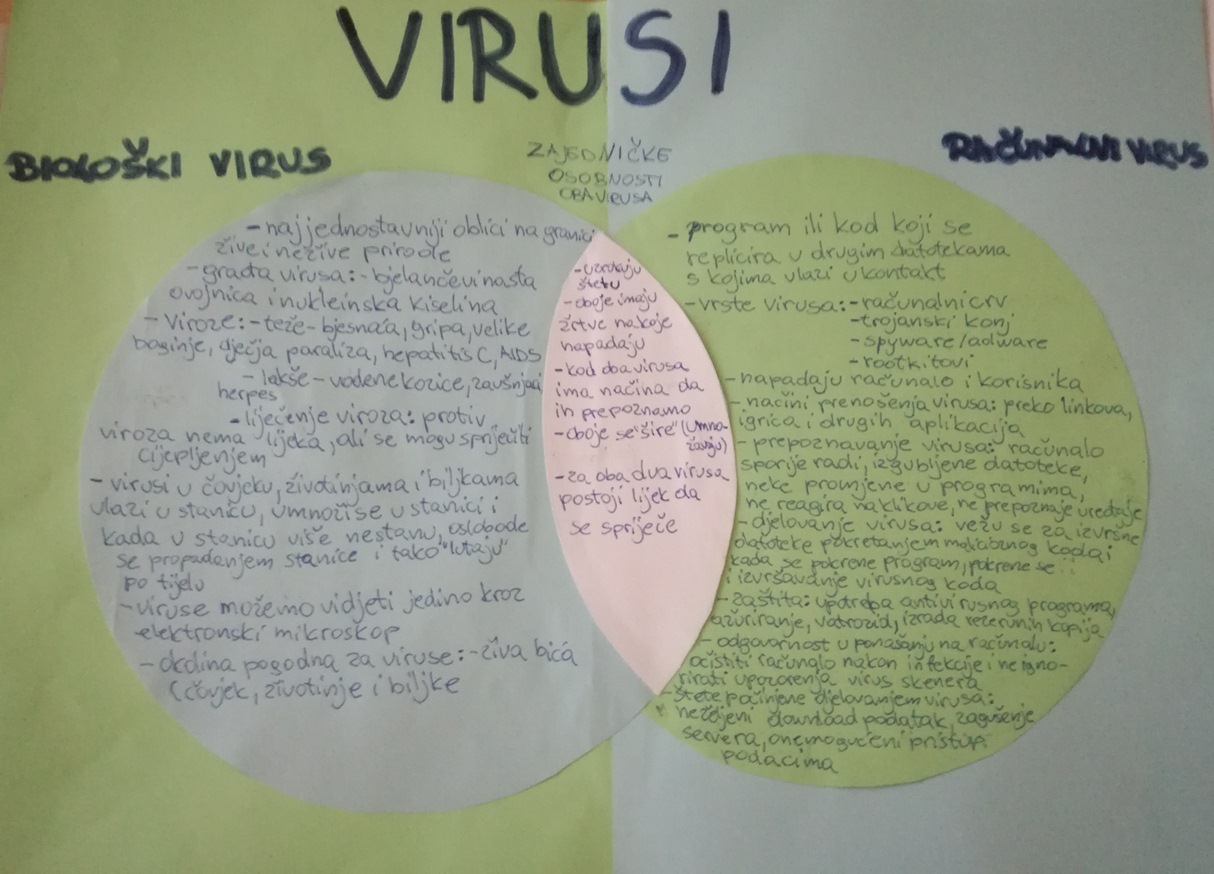 VIRUSI
BIOLOŠKI VIRUS
- najjednostavniji oblici na granici
žive i nežive prirode
- građa virusa: - bjelančevinasta
ovojnica i nukleinska kiselina
- Viroze: - teže - bjesnaća, gripa, velike
boginje, dječja paraliza, hepatitis C, AIDS
- lakše - vodene kozice, zaušnjaci
herpes
- liječenje viroza: protiv
viroza nema lijeka, ali se mogu spriječiti
cijepljenjem
- virusi u čovjeku, životinjama i biljkama
ulazi u stanicu, umnoži se u stanici i
kada u stanicu više nestanu, oslobode
se propadanjem stanice i tako "lutaju"
po tijelu
- viruse možemo vidjeti jedino kroz
elektronski mikroskop
- okolina pogodna za viruse: - živa bića
(čovjek, životinje i biljke
ZAJEDNIČKE
OSOBNOSTI
OBA VIRUSA
- uzrokuju
štetu
- oboje imaju
žrtve na koje
napadaju
- kod oba virusa
ima načina da
ih prepoznamo
- oboje se "šire" (umno-
žavaju)
- za oba dva virusa
postoji lijek da
se spriječe
RAČUNALNI VIRUS
- program ili kod koji se
replicira u drugim datotekama
s kojima ulazi u kontakt
- vrste virusa: - računalni crv
- trojanski konj
- spyware/adware
- rootkitovi
- napadaju računalo i korisnika
- načini prenošenja virusa: preko linkova,
igrica i drugih aplikacija
- prepoznavanje virusa: računalo
sporije radi, izgubljene datoteke,
neke promjene u programima,
ne reagira na klikove, ne prepoznaje uređaje
- djelovanje virusa: vežu se za izvršne
datoteke pokretanjem malicioznog koda i
kada se pokrene program, pokrene se
i izvršavanje virusnog koda
- zaštita: upotreba antivirusnog programa,
ažuriranje, vatrozid, izrada rezervnih kopija
- odgovornost u ponašanju na računalu:
očistiti računalo nakon infekcije i ne igno-
rirati upozorenja virus skenera
- štete počinjene djelovanjem virusa:
neželjeni download podatak, zagušenje
servera, onemogućeni pristup
podacima